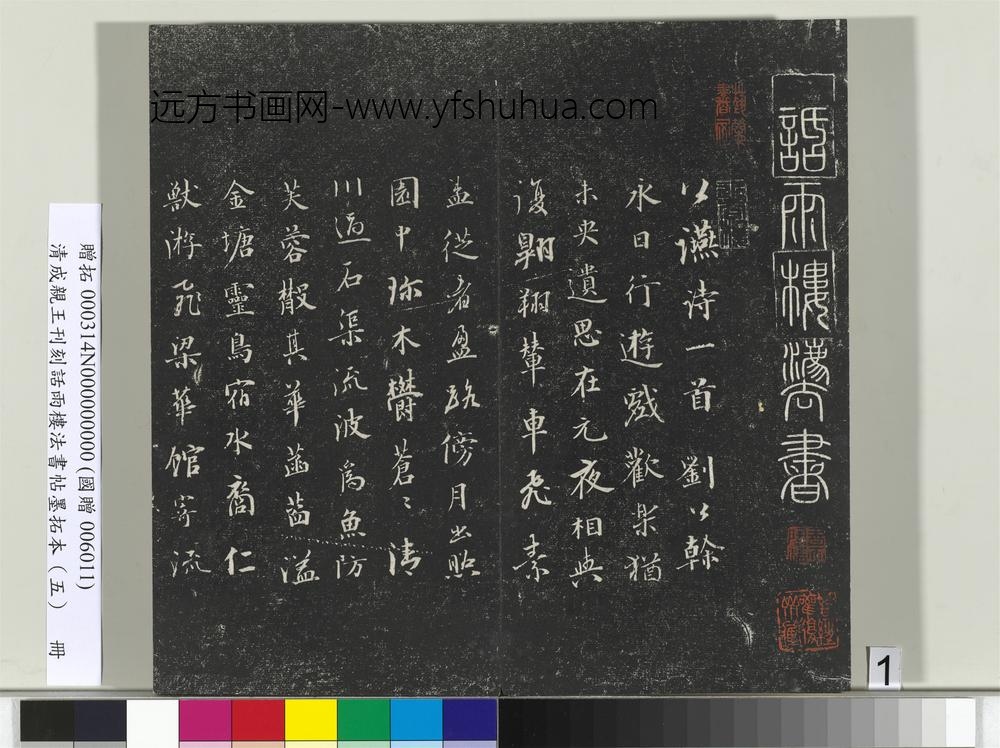 远方书画网-www.yfshuhua.com
話雨樓法書
公讌詩一首 劉公幹
永日行遊戲歡樂猶
未央遺思在元夜相與
復翱翔輦車飛素
盖從者盈路傍月出照
園中珎木鬱蒼〻清
川過石渠流波為魚防
芙蓉散其華菡萏溢
金塘靈鳥宿水裔仁
獸游飛梁華館寄流
贈拓 000314N000000000 (國贈 006011)
清成親王刊刻話雨樓法書帖墨拓本（五） 冊
1